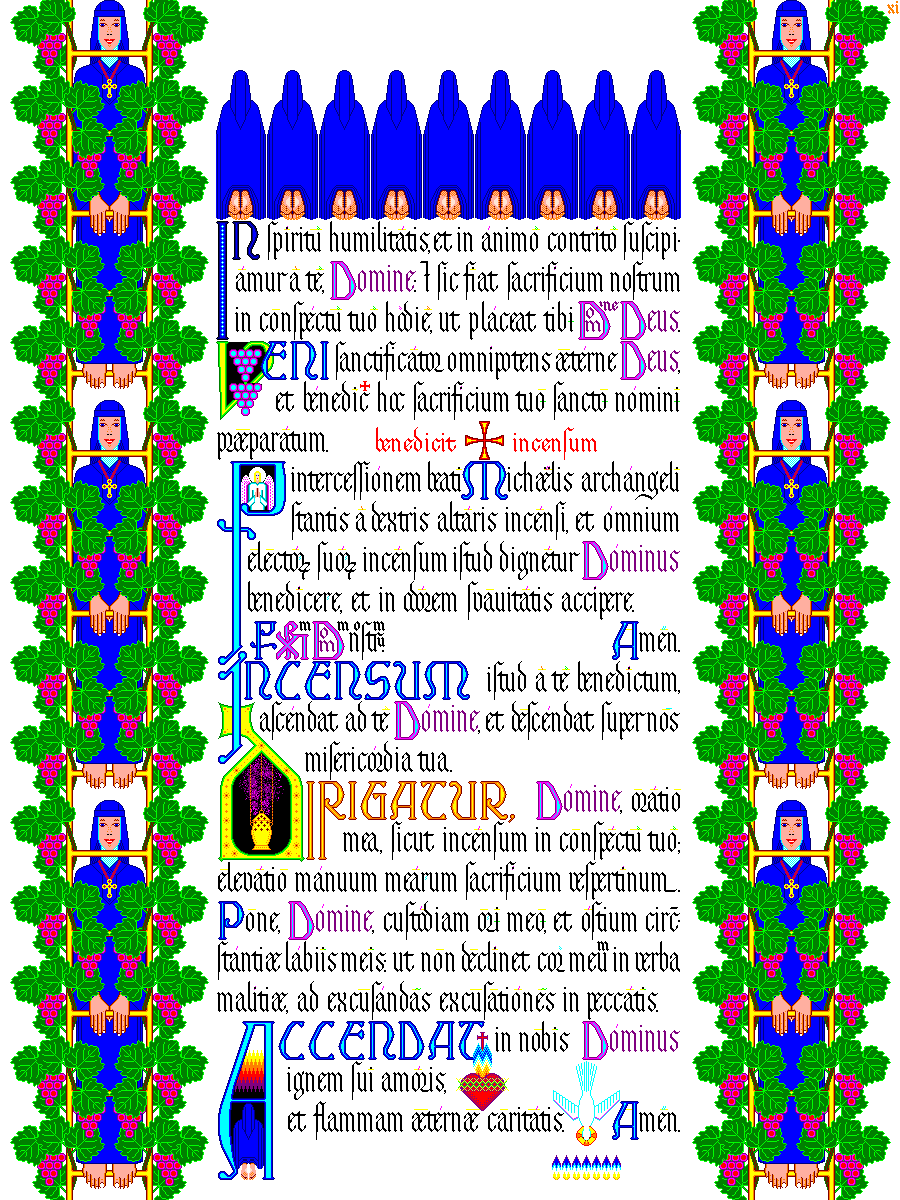 xi
IN ſpíritu humilitátis, et in ánimo contríto ſuſcipi-
ámur a te, Dómine: ⁊ ſic fiat ſacrifícium noſtrum
in conſpéctu tuo hódie, ut pláceat tibi Dñe Deus.
VENI ſanctificátor omnípotens ætérne Deus,
et bénedic ✝ hoc ſacrifícium tuo ſancto nómini
præparátum. benedicit ✠ incenſum
Per interceſſiónem beáti Michaélis archángeli
ſtantis a dextris altáris incénſi, et ómnium
electóꝝ ſuóꝝ incénſum iſtud dignétur Dóminus
benedícere, et in odórem ſuavitátis accípere.
P XPM Dom nſtm Amén.
INCENSUM iſtud a te benedíctum,
aſcéndat ad te Dómine, et deſcéndat ſuper nos
miſericórdia tua.
DIRIGATUR, Dómine, orátio
mea, ſicut incénſum in conſpéctu tuo;
elevátio mánuum meárum ſacrifícium veſpertínum.
Pone, Dómine, cuſtódiam ori meo, et óſtium circū-
ſtántiæ lábiis meis: ut non declínet cor meū in verba
malítiæ, ad excuſándas excuſatiónes in peccátis.
ACCENDAT in nobis Dóminus
ignem ſui amóris,
et flammam ætérnæ caritátis. Amén.